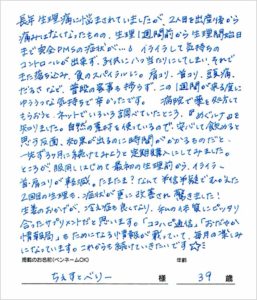 長年生理痛に悩まされていましたが、2人目を出産後から
痛みはなくなったものの、生理1週間前から生理開始日
まで完全PMSの症状が…! イライラして気持ちの
コントロールが出来ず、子供に八つ当たりしてしまい、それで
また落ち込み、負のスパイラルに。肩コリ、首コリ、頭痛、
だるさなどで、普段の家事も捗らず、この1週間が来る度に
ゆううつな気持ちで辛かったです。 病院で薬を処方して
もらおうと、ネットでいろいろ調べていたところ、『めぐルナ』を
知りました。自然の素材を使っているので、安心して飲めると
思う反面、効果が出るのに時間がかかるものだと
一先ず3ヶ月は続けてみようと定期購入にしてみました。
ところが、服用しはじめて最初の生理前から、イライラ・
首・肩コリが軽減。たまたま?なんて半信半疑でむかえた
2回目の生理も、症状が更に改善され驚きました!
生姜のおかげか、冷え症も良くなり、私の体質にピッタリ
合ったサプリメントだと思います。「ココハピ通信」「おだやか
情報局」もためになるよい情報が載っていて、毎月の楽しみ
になっています。これからも続けていきたいです☆
掲載のお名前(ペンネームOK) 年齢
ちぇすとべりー 様 39 歳